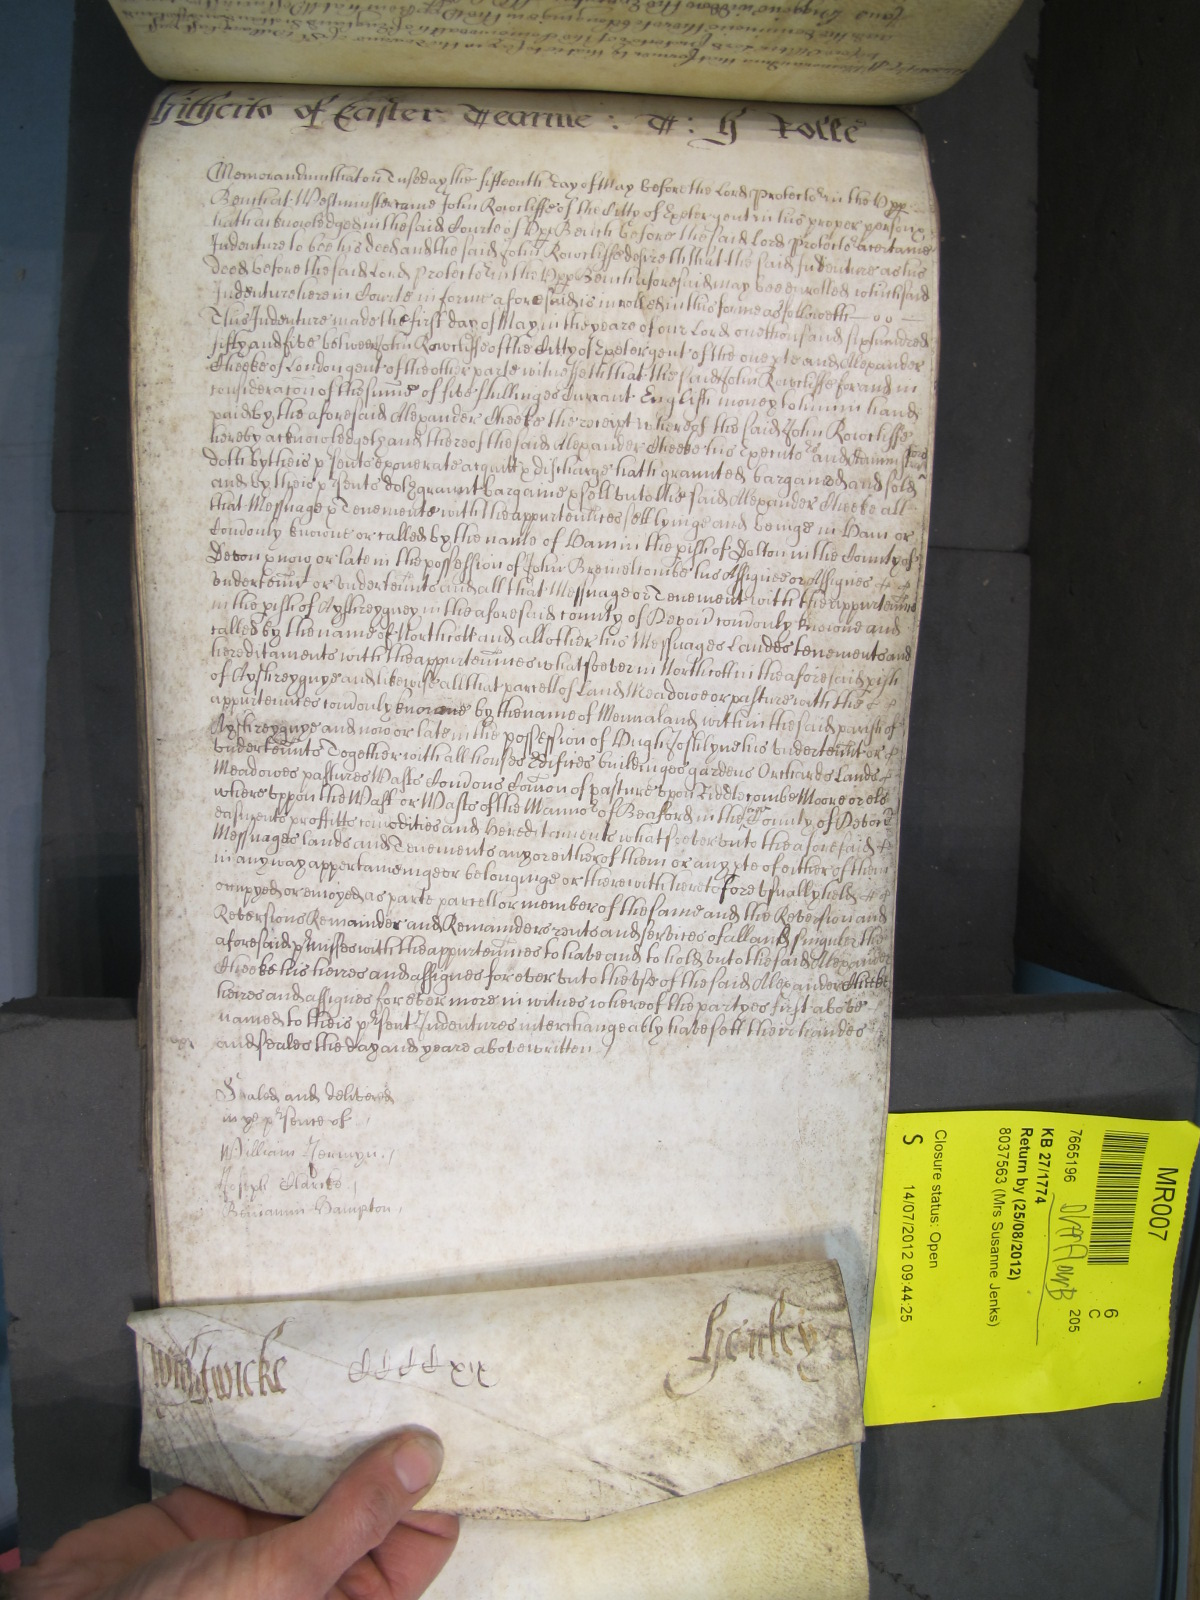 hithcito of Easter Tearme : A : h Rolle
Memorandum that on Tuseday the fifteenth day of May before the Lord Protector in the Vpp
Bench at Westminster came John Rowcliffe of the Citty of Exeter gent in his proper person
hath acknowledged in the said Courte of Vpp Bench before the said Lord Protector a certaine
Indenture to bee his deed and the said John Rowcliffe desireth that the said Indenture as his
deed before the said Lord Protector in the Vpp Bench aforesaid may bee enrolled which said
Indenture here in Courte in forme aforesaid is inrolled in this forme as followeth
This Indenture made the first day of May in the yeare of our Lord one thousand six hundred
fifty and five between John Rowcliffe of the Citty of Exeter gent of the one pte and Alexander
Cheeke of London gent of the other parte witnesseth that the said John Rowcliffe for and in
consideracon of the summe of five shillinges Currant English money to him in hand
paid by the aforesaid Alexander Cheeke the receipt whereof the said John Rowcliffe
hereby acknowledgeth and thereof the said Alexander Cheeke his Executors and
doth by theis psents exonerate acquitt & discharge hath graunted bargained and sold
and by theis psents doth graunt bargaine & sell vnto the said Alexander Cheeke all
that Messuage & Tenemente with the appurtennces lyinge and beinge in Ham or
comonly knowne or called by the name of Ham in the pish of Dolton in the County of
Devon now or late in the possession of John Bremelcombe his Assignee or Assignes
vndertennt or vndertennts and all that Messuage or Tenement with the appurtennces
in the pish of Ayshreygney in the aforesaid county of Devon comonly knowne and
called by the name of Northcott and all other his Messuages Landes tenements and
hereditaments with the appurtennces whatsoever in Northcott in the aforesaid pish
of Ayshreygnye and likewise all that parcell of Land Meadowe or pasture with the
appurtenances comonly knowne by the name of Mennaland within the said parish of
Ayshreygnye and now or late in the possession of Hugh Joslyne his vndertennt or
vndertennts Together with all houses Edifices buildinges gardens Orchards Lands
Meadowes pastures Wasts Comons Comon of pasture vpon Riddlecombe Moore or els
where vppon the Wast or Wasts of the Mannor of Beaford in the said County of Devon
easments proffitts comodities and Hereditaments whatsoever vnto the aforesaid
Messuages lands and Tenements any or either of them or any pte of either of them
in any way appertaineinge or belonginge or therewith heretofore vsually held
occupyed or enioyed as parte parcell or member of the same and the Reversion and
Reversions Remainder and Remainders rents and services of all and singuler the
aforesaid pmisses with the appurtennces to have and to hold vnto the said Alexander
Cheeke his heires and assignes for ever vnto the vse of the said Alexander Cheeke
heires and assignes for ever more in witnes whereof the partyes first above
named to theis psent Indentures interchangeably have sett their handes
and seales the day and yeare above written
Sealed and delivered
in ye psence of
William Jermyn
Joseph Clarke
Benjamin Hampton
Wightwicke CCCCxix Henley
MR007
6
C
205
7665196 overflowB
KB 27/1774
Return by (25/08/2012)
8037563 (Mrs Susanne Jenks)
Closure status: Open
S 14/07/2012 09:44:25